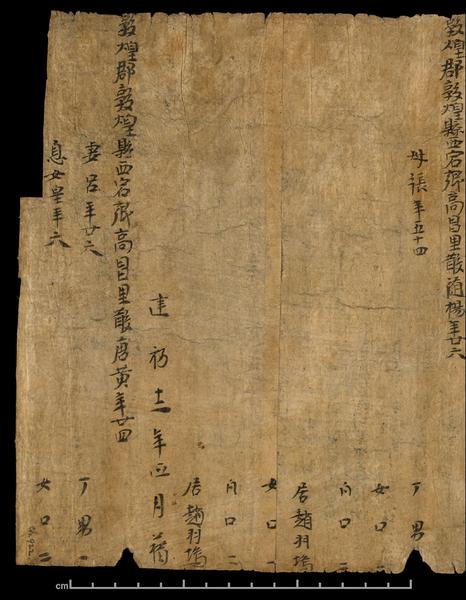 敦煌郡敦煌縣西宕鄉高昌里散隨楊年廿六
母張年五十四 丁男
女口
凡口
居趙羽塢
女口一
凡口二
居趙羽塢
建初十二年正月籍
敦煌郡敦煌縣西宕鄉高昌里散唐黃年廿四
妻呂年廿六 丁男一
息女皇年六 女口二
cm